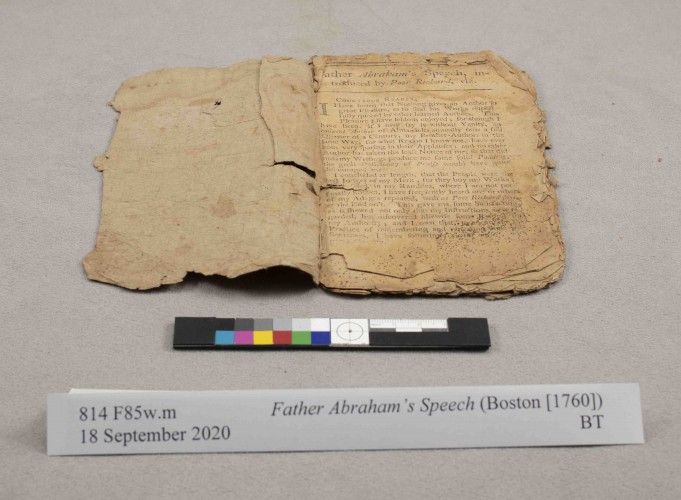 Father Abraham's Speech, in-
troduced by Poor Richard, viz.
COURTEOUS READER,
I Have heard that Nothing gives an Author so
great Pleasure, as to find his Works respect-
fully quoted by other learned Authors. This
Pleasure I have seldom enjoyed; for though I
have been, if I may say it without Vanity, an
eminent Author of Almanacks annually now a full
Quarter of a Century, my Brother-Authors in the
same Way, for what Reason I know not, have ever
been very sparing in their Applauses; and no other
Author has taken the least Notice of me; so that did
not my Writings produce me some solid Pudding,
the great Deficiency of Praise would have quite
I concluded at length, that the People were the
best Judges of my Merit; for they buy my Works;
in my Rambles, where I am not per-
sonally known, I have frequently heard one or other
of my Adages repeated, with, as Poor Richard says,
This gave me some Satisfaction,
as it showed not only that my Instructions were re-
garded, but discovered likewise some Respect
my Authority; and I own, that to encourage the
Practice of remembering and repeating those
I have sometimes
814 F85w.m
Father Abraham's Speech (Boston [1760])
18 September 2020
BT